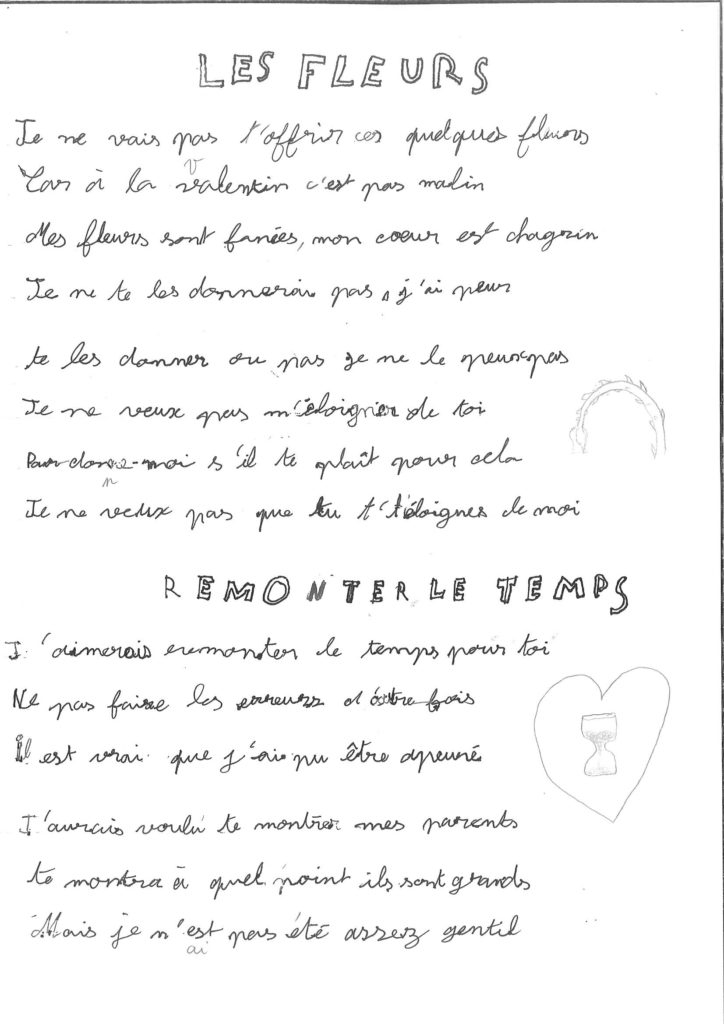 LES FLEURS
Je ne vais pas t'offrir ces quelques fleurs
Car à la valentin c'est pas malin
v
Mes fleurs sont fanées, mon coeur est chagrin
Je ne te les donnerai pas, j'ai peur
te les donner ou pas je ne le peux pas
Je ne veux pas m'éloigner de toi
Pardonne-moi s'il te plaît pour cela
n
Je ne veux pas que tu t'éloignes de moi
REMONTER LE TEMPS
J'aimerais remonter le temps pour toi
Ne pas faire les erreurs d'autrefois
Il est vrai que j'ai pu être apeuré
J'aurais voulu te montrer mes parents
te montra à quel point ils sont grands
Mais je n'est pas été assez gentil
ai